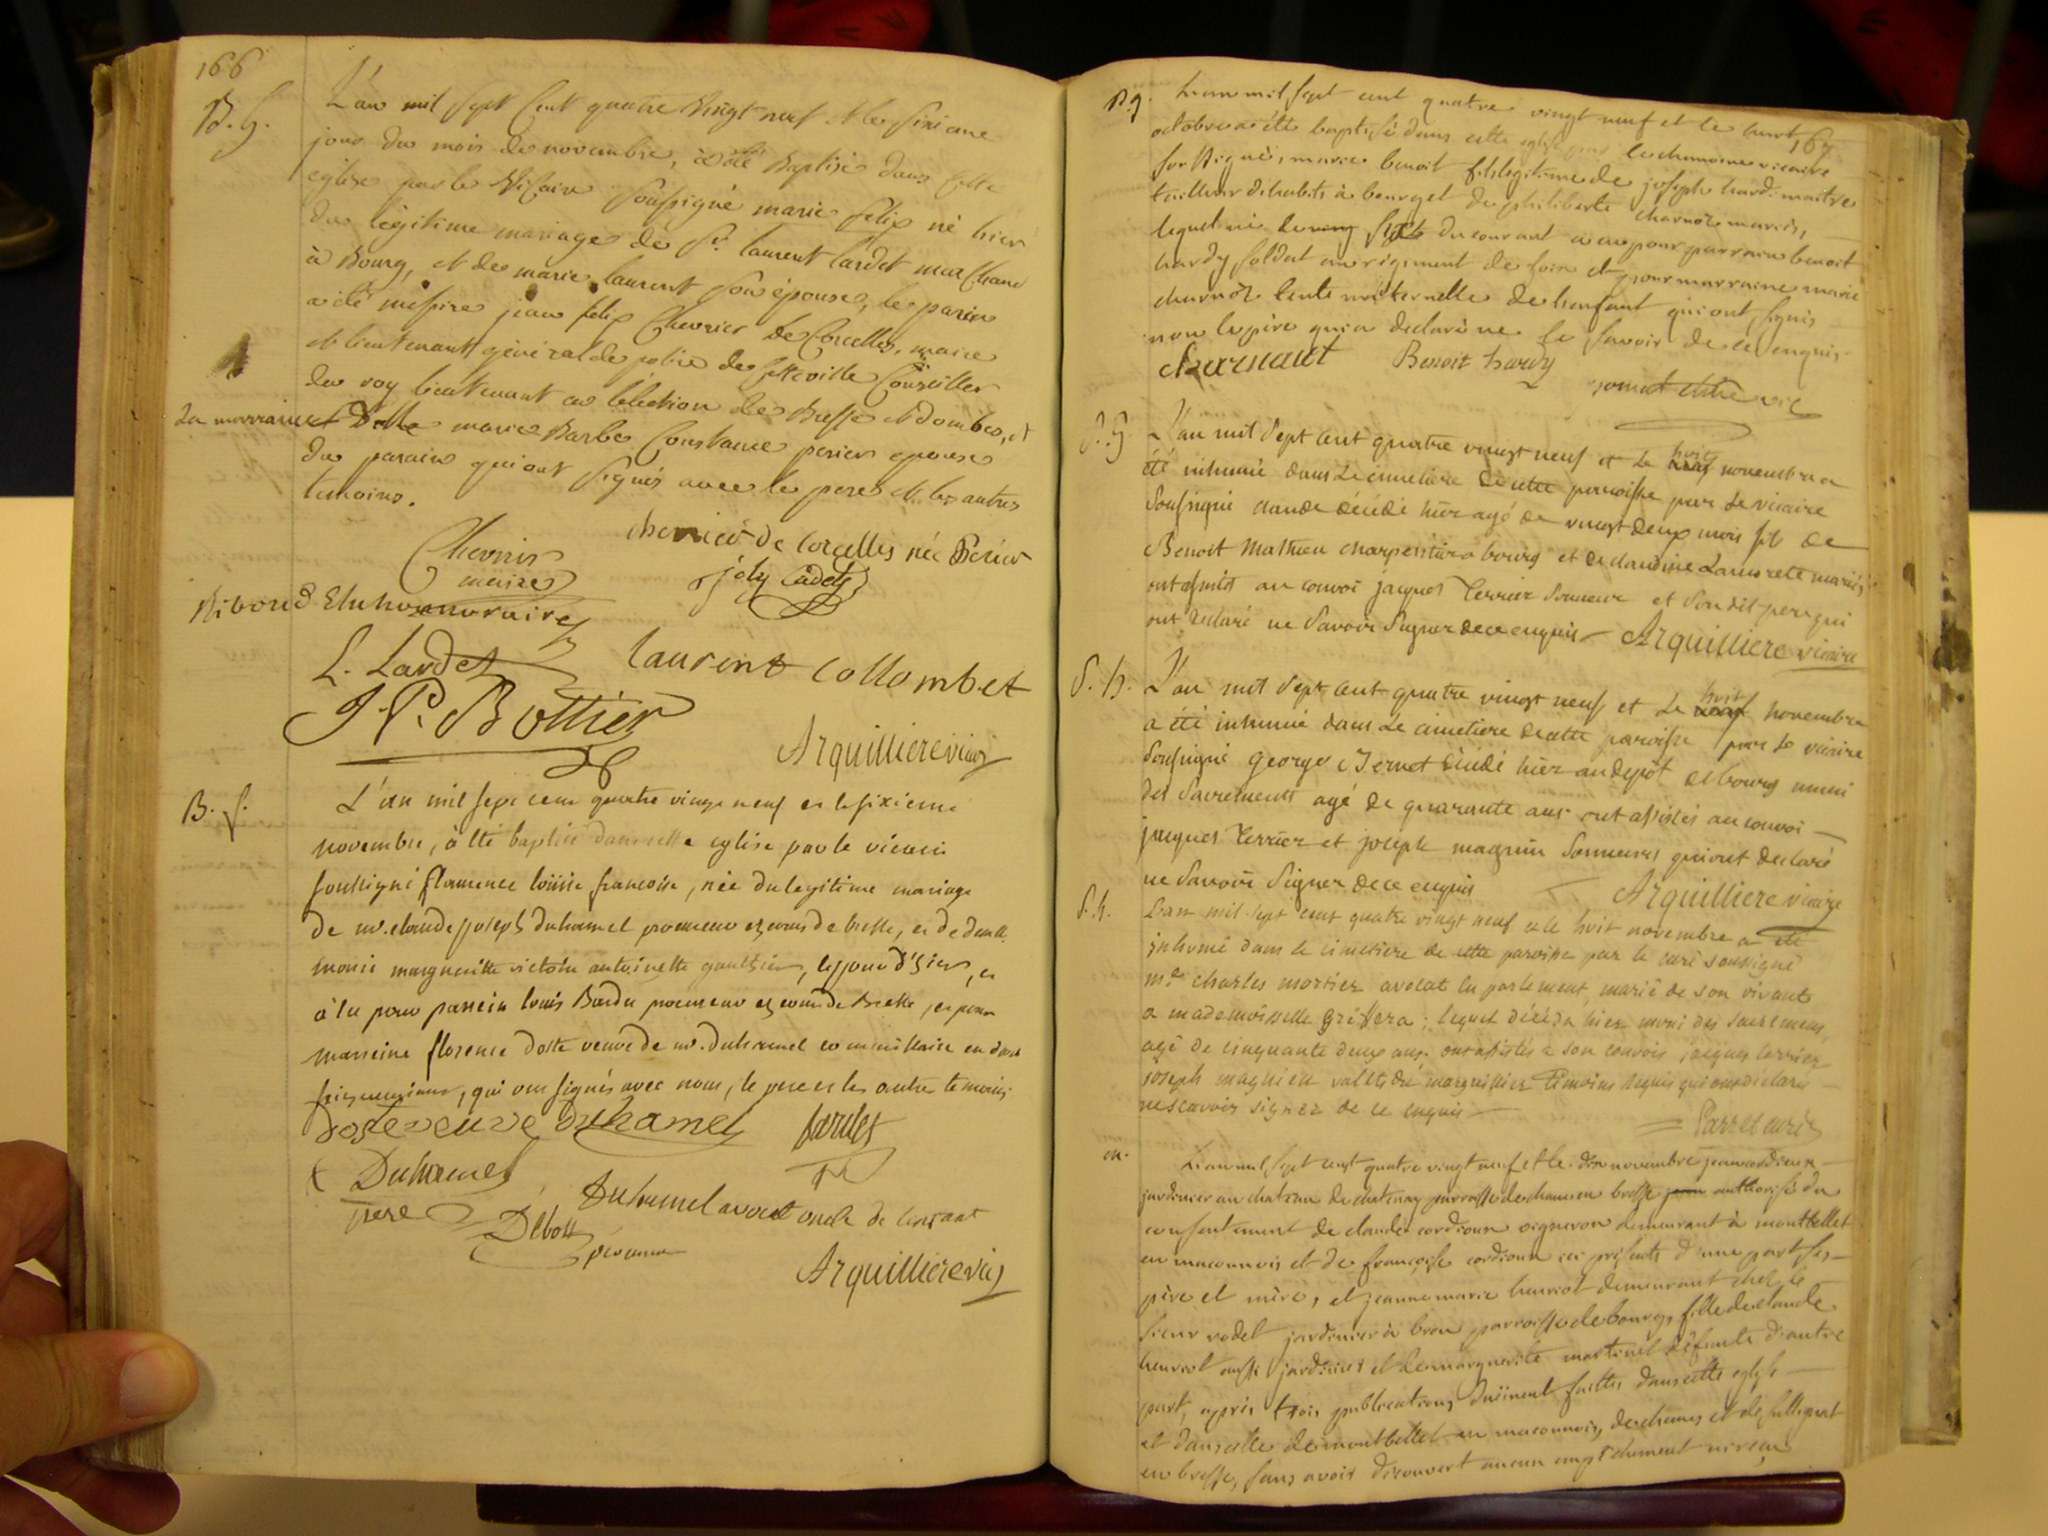 166
B. g.
L'an mil sept Cent quatre Vingt neuf et le sixieme
jour du mois de novembre, a été Baptisé dans cette
eglise par le Vicaire soussigné marie felix né hier
du légitime mariage de Sr. laurent lardet marchand
à Bourg, et de marie laurent son épouse, le parin
a été messire jean felix Chevrier De Corcelles, maire
et lieutenant général de police de cette ville Conseiller
du roy lieutenant en l'élection de Bresse et dombes, et
la marraine et Delle marie Barbe Constance perier epouse
du parain qui ont signés avec le pere et les autres
temoins.
Chevrier
maire
chevrier de Corcelles née Perier
joly Cadet
Riboud Elu honnoraire
L. Lardet
laurent collombet
J. P. Bottier
Arquilliere vicaire
B. f.
L'an mil sept cent quatre vingt neuf et le sixieme
novembre, à été baptisé dans cette eglise par le vicaire
soussigné florence loüise françoise, née du legitime mariage
de mr. claude joseph duhamel procureur ez cours de bresse, et de demlle.
marie margueritte victoire antoinette gauthier, le jour d'hier, et
à eu pour parrein louis Bardet procureur ez cours de Bresse, et pour
marreine florence doste veuve de mr. duhamel commissaire en droit
seigneuriaux, qui ont signés avec nous, le pere et les autre temoins
Doste veuve Duhamel
Bardet
Duhamel
pere
Duhamel avocat oncle de l'enfant
Debost
procureur
Arquilliere vic
167
B. g.
L'an mil sept cent quatre vingt neuf et le huit
octobre a été baptisé dans cette eglise par le chanoine vicaire
soussigné, marie benoit fils legitime de joseph hardi maitre
tailleur d'habits à bourg et de philiberte charnôz mariés,
lequel né le sept du courant a eu pour parrain benoit
hardy soldat au regiment de foix et pour marraine marie
charnôz tante maternelle de l'enfant qui ont signés
non le père qui a declaré ne le savoir de ce enquis.
Charnaud
Benoit hardy
S. g.
L'an mil sept cent quatre vingt neuf et le huit novembre a
été inhumé dans le cimetiere de cette paroisse par le vicaire
soussigné claude décédé hier agé de vingt deux mois fils de
Benoit Mathieu charpentier a bourg et de claudine Lamurete mariés;
ont assistés au convoi jacques Terrier Sonneur et Son dit pere qui
ont declaré ne Savoir Signer de ce enquis Arquilliere vicaire
S. h.
L'an mil Sept cent quatre vingt neuf et le huit novembre
a été inhumé dans le cimetiere de cette paroisse par le vicaire
Soussigné George décédé hier au depôt de bourg muni
des Sacrements agé de quarante ans ont assistés au convoi
jacques Terrier et joseph magnin Sonneurs qui ont declaré
ne Savoir Signer de ce enquis
Arquilliere vicaire
S. h.
L'an mil sept cent quatre vingt neuf et le huit novembre a été
inhumé dans le cimetiere de cette paroisse par le curé soussigné
me. charles mortier avocat en parlement, marié de son vivant
a mademoiselle grifera; lequel décéda hier muni des sacremens,
agé de cinquante deux ans. ont assistés a son convois jacques terrier
joseph magnien valets du marguillier témoins requis qui ont declaré
ne scavoir signer de ce enquis
Parret curé
m.
L'an mil sept cent quatre vingt neuf et le dix novembre jean cordioux
jardinier au chateau de chatenay parroisse de chanes en bresse jean authorisé du
consentement de claude cordioux vigneron demeurant à montbellet
en maconnois et de françoise cordioux ici présents d'une part ses
père et mère, et jeanne marie heuriot demeurant chez le
sieur vodet jardinier à brou parroisse de bourg, fille de claude
heuriot aussi jardinier et de marguerite martinet défunte d'autre
part, après trois publications duëment faittes dans cette eglise
et dans celle de montbellet en maconnois, de chanes et de
en bresse, sans avoir découvert aucun empêchement